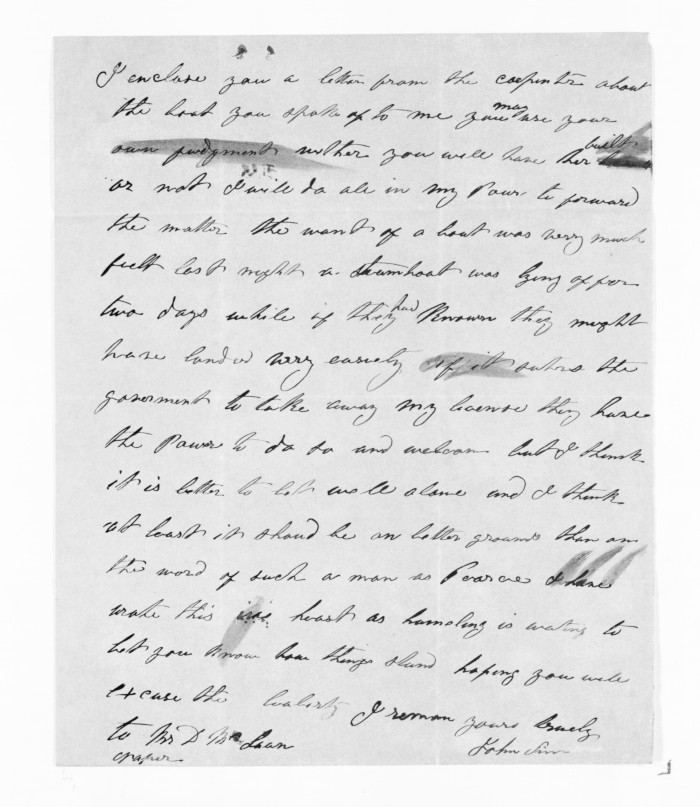 I enclose you a letter from the carpenter about
the boat you spoke of to me you may use your
own judgment wither you well have her built
or not I will do all in my Power to forward
the matter the want of a boat was very much
felt last night a stumboat was lying off for
two days while if they had Known they might
have landed very easiely if it suters the
goverment to take away my licence they have
the Power to do so and welcom but I think
it is better to let well alone and I think
at least it shoud be on better grounds than on
the word of such a man as Pearce I have
wrote this in heast as is wating to
let you Know how things stand hoping you will
excuse the I reman yours truely
to Mr D Mc Lean John Sim